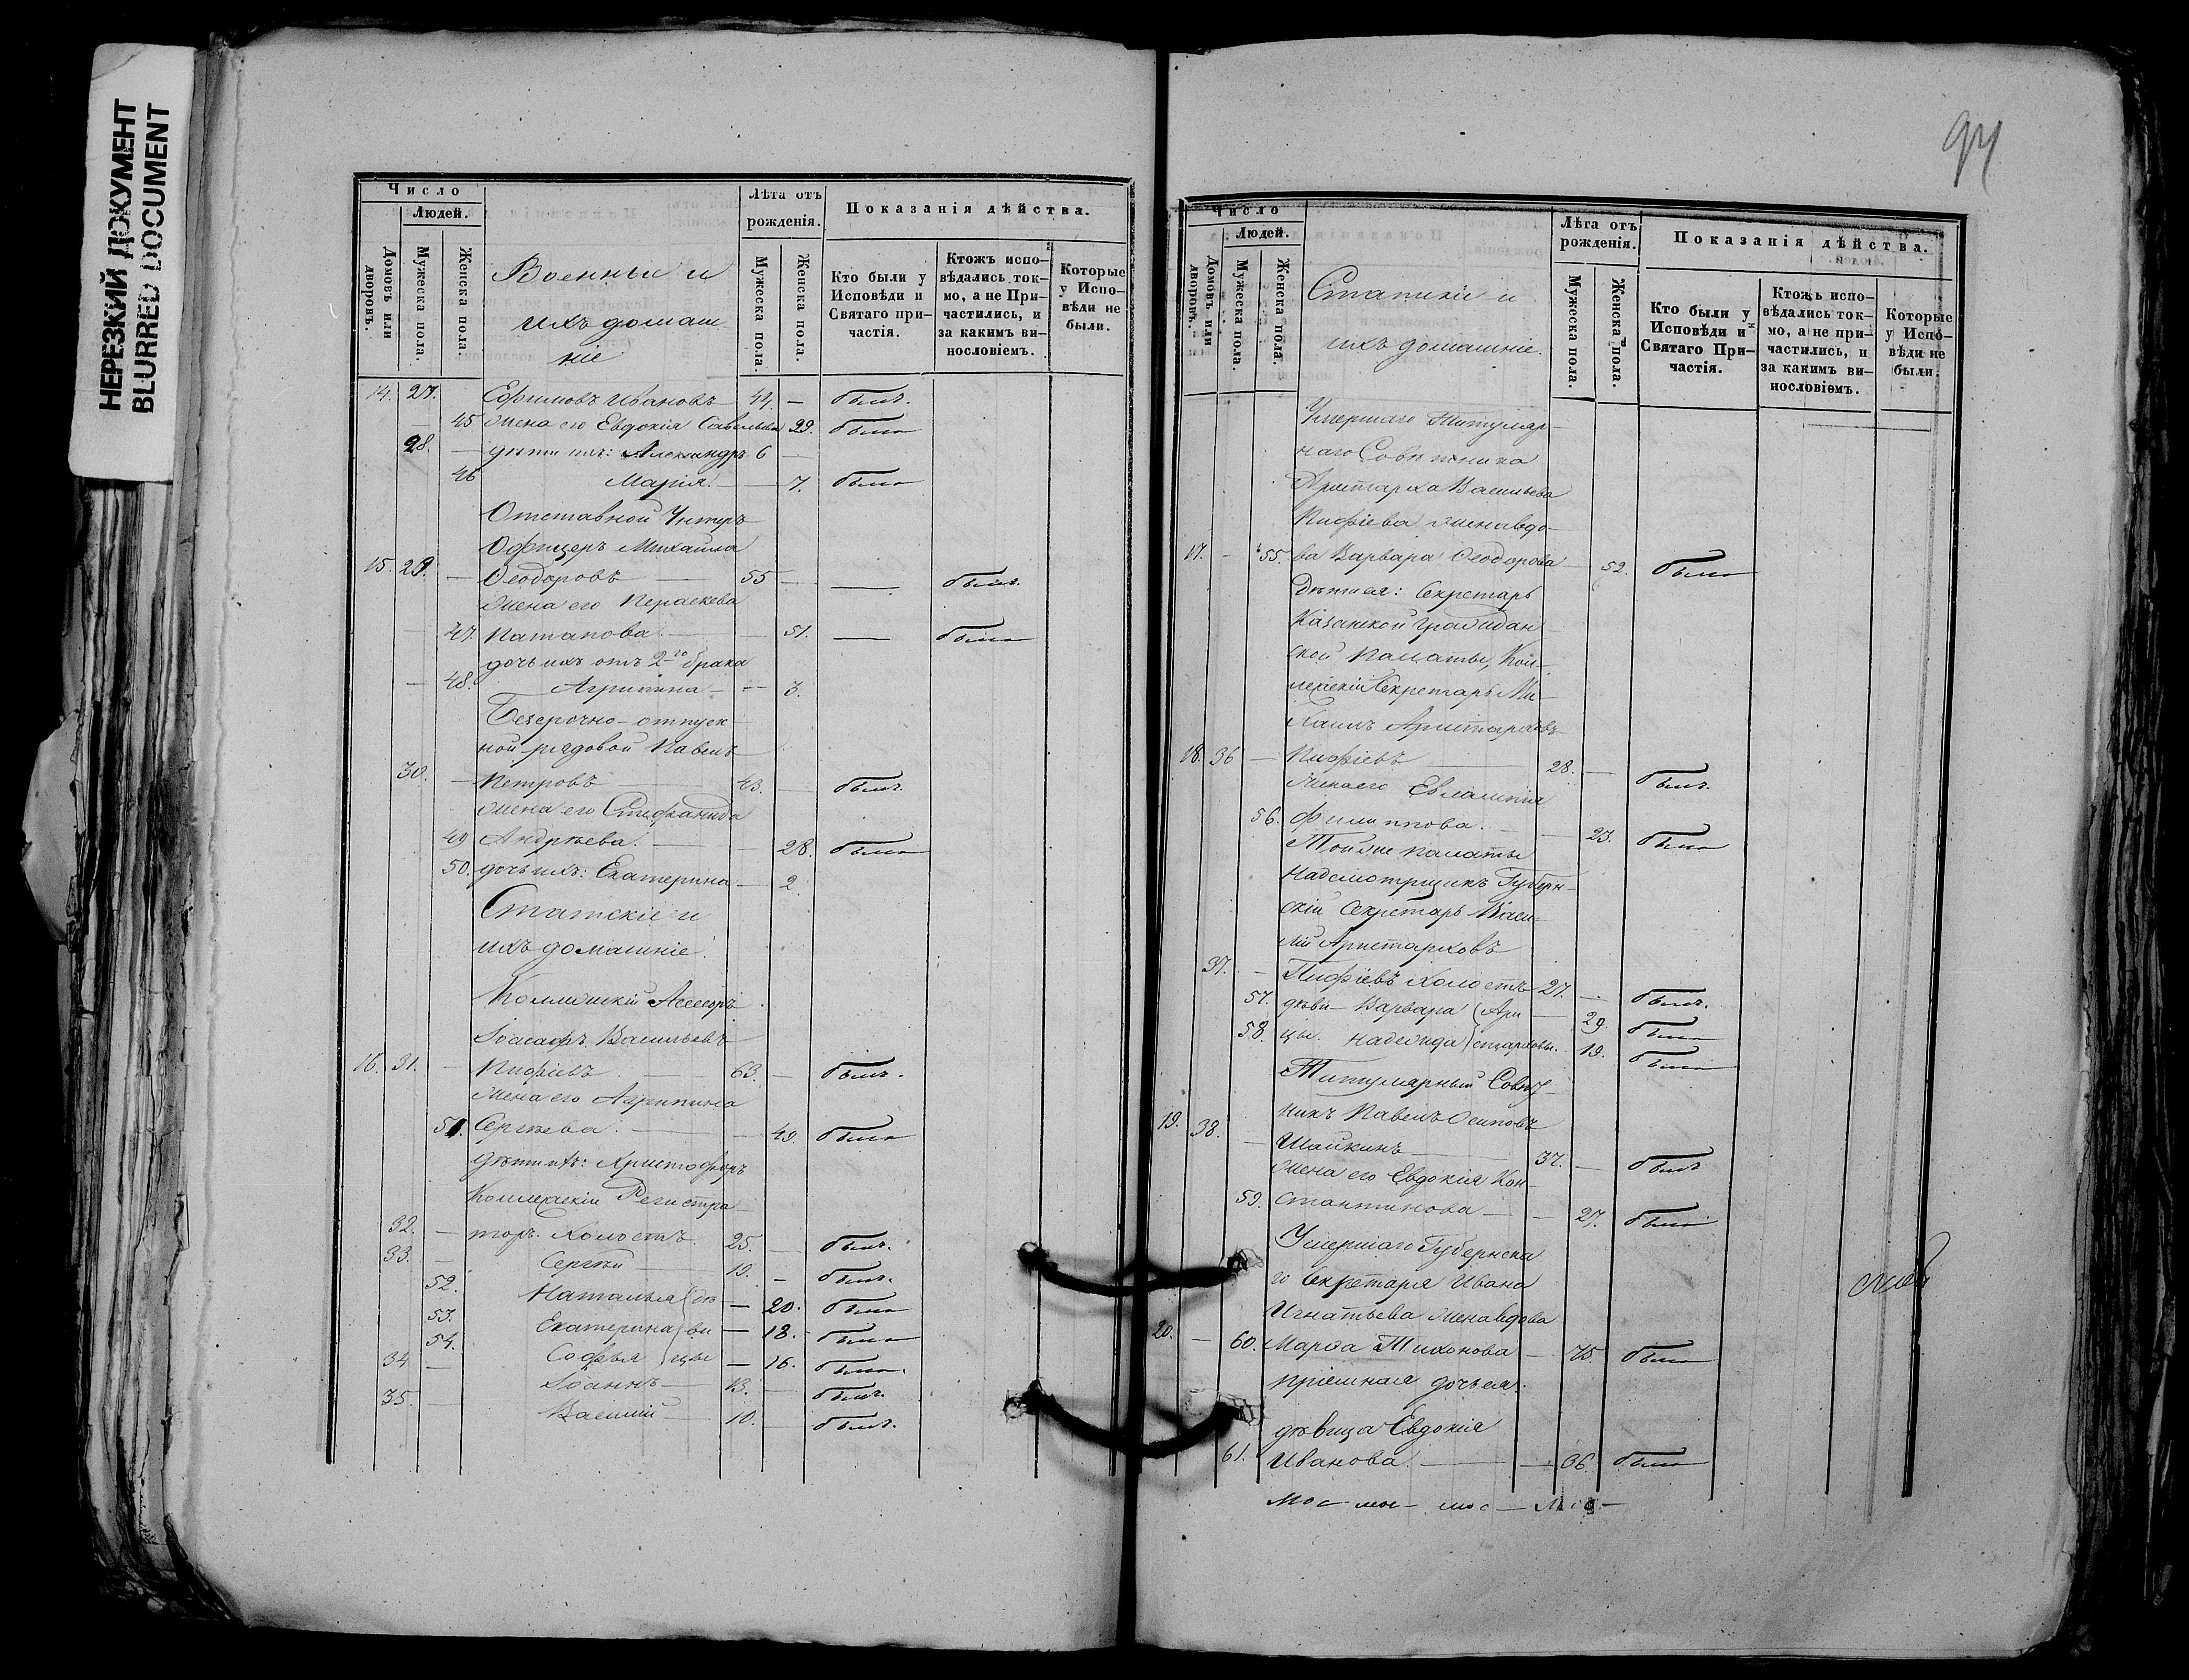 НЕРЕЗКИЙ ДОКУМЕНТ
BLURRED DOCUMENT
Число
Людей.
Домовъ или дворовъ.
Мужеска пола.
Женска пола.
Военныи и
ихъ домаш-
ніе
Лѣта отъ
рожденія.
Мужеска пола.
Женска пола.
Показанія дѣйства.
Кто были у
Исповѣди и
Святаго при-
частія.
Ктожъ испо-
вѣдались ток-
мо, а не При-
частились, и
за какимъ ви-
нословіемъ.
Которые
у Испо-
вѣди не
были.
14. 27. Ефимовъ Ивановъ 44. — былъ.
45 Жена его Евдокія Савельева 29. была
28. — дѣти ихъ: Александръ 6 —
46 Марія. — 7. была
Отставной Унтеръ
Офицеръ Михаила
15. 29. — Ѳеодоровъ — 55 — — былъ.
Жена его Параскева
47. Патапова. — 51. — была
дочь ихъ отъ 2го брака
— 48. Агрипина — — 3.
Безсрочно-отпуск
ной рядовой Павелъ
30. — Петровъ — 43. — былъ.
Жена его Стефанида
49 Андрѣева. — — 28. была
50. дочь ихъ: Екатерина — 2.
Статскіе и
ихъ домашніе.
Коллежскій Ассесоръ
Іоасафъ Васильевъ
16. 31. — Пифіевъ — 63. — былъ.
Жена его Агрипина
51. Сергѣева. — — 49. была
дѣти ихъ: Христофоръ
Коллежскій Регистра
32. — торъ. Холостъ. 25. — былъ.
33. — Сергѣй — 19. — былъ.
52. Наталья (дѣ — 20. была
53. Екатерина ви — 18. была
54. Софья цы — 16. была.
34 — Іоаннъ — 13. — былъ.
35. — Василій — 10. — былъ.
94
Число
Людей.
Домовъ или дворовъ.
Мужеска пола.
Женска пола.
Статскіе и
ихъ домашніе.
Лѣта отъ
рожденія.
Мужеска пола.
Женска пола.
Показанія дѣйства.
Кто были у
Исповѣди и
Святаго При-
частія.
Ктожъ испо-
вѣдались ток-
мо, а не при-
частились, и
за какимъ ви-
нословіемъ.
Которые
у Испо-
вѣди не
были.
Умершаго Титуляр-
наго Совѣтника
Аристарха Васильева
Пифіева жена вдо-
17. — 55. ва Варвара Ѳеодорова — 52. была
Дѣти ея: Секретарь
Казанской Граждан
ской Палаты, Кол-
лежскій Секретарь Ми-
хаилъ Аристарховъ
18. 36 — Пифіевъ — 28. — былъ.
Жена его Евлампія
56. Филиппова. — — 23. была
Той же палаты
Надсмотрщикъ Губерн-
скій Секретарь Васи-
лій Аристарховъ
37. — Пифіевъ холостъ 27. — былъ.
57. дѣви — Варвара (Ари — 29. была
58. цы. Надежда) старховы. 19. была
Титулярный Совѣт-
19. 38. никъ Павелъ Осиповъ
— Шайкинъ — 37. — былъ
Жена его Евдокія Кон-
59. стантинова — — 27. была
Умершаго Губернска
го Секретаря Ивана
Игнатьева жена вдова
20. — 60. Марѳа Тихонова — 75. была
пріемная дочь ея:
дѣвица Евдокія
61. Иванова. — — 36. была